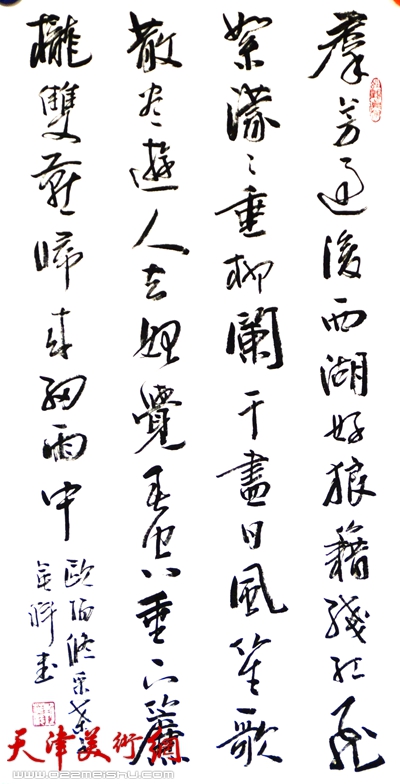 羣芳過後西湖好狼籍殘紅飛
絮濛濛垂柳闌干盡日風笙歌
散盡遊人去始覺春空垂下簾
櫳雙燕歸來細雨中
歐陽修采桑子
書
天津美術網
www.022meishu.com